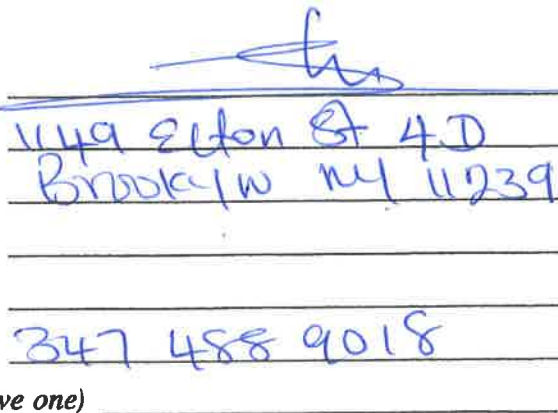 1149 Elton St 4D
Brooklyn NY 11239
347 488 9018
ve one)